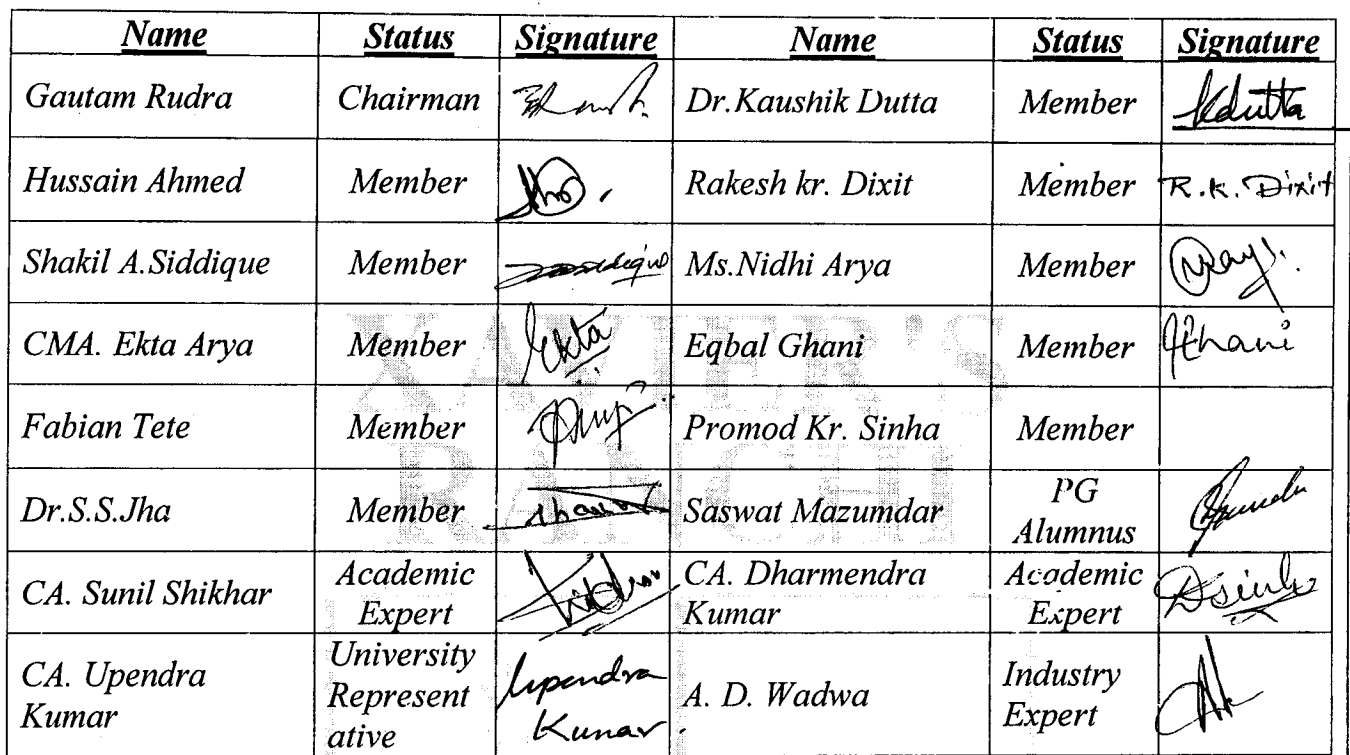 Name Status Signature Name Status Signature
Gautam Rudra Chairman Dr.Kaushik Dutta Member Kdutta
Hussain Ahmed Member Rakesh kr. Dixit Member R.K. Dixit
Shakil A.Siddique Member Ms.Nidhi Arya Member
XAVIER'S
CMA. Ekta Arya Member Ekta Eqbal Ghani Member
Fabian Tete Member Promod Kr. Sinha Member
RANCHI
Dr.S.S.Jha Member Saswat Mazumdar PG
Alumnus
CA. Sunil Shikhar Academic
Expert CA. Dharmendra
Kumar Academic
Expert
CA. Upendra
Kumar University
Represent
ative Upendra
Kumar A. D. Wadwa Industry
Expert